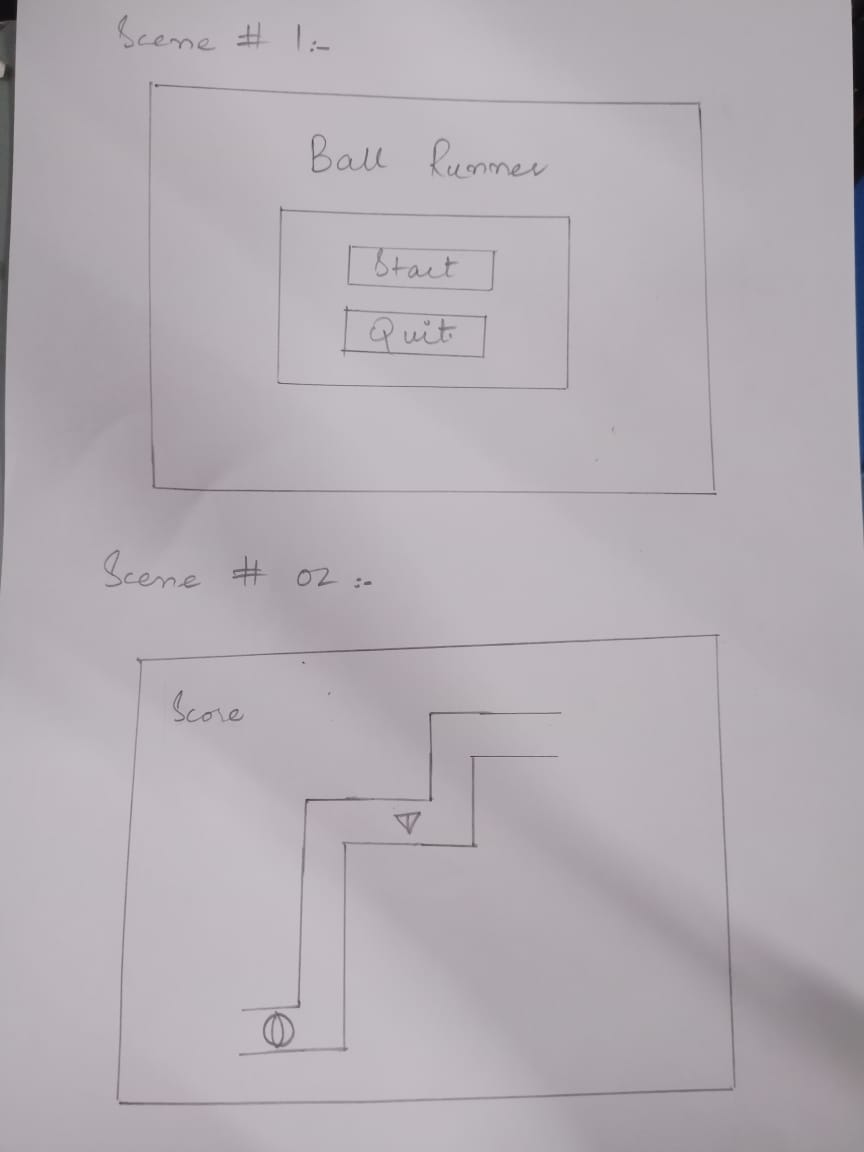 Scene # 1:-
Ball Runner
Start
Quit
Scene # 02 :-
Score